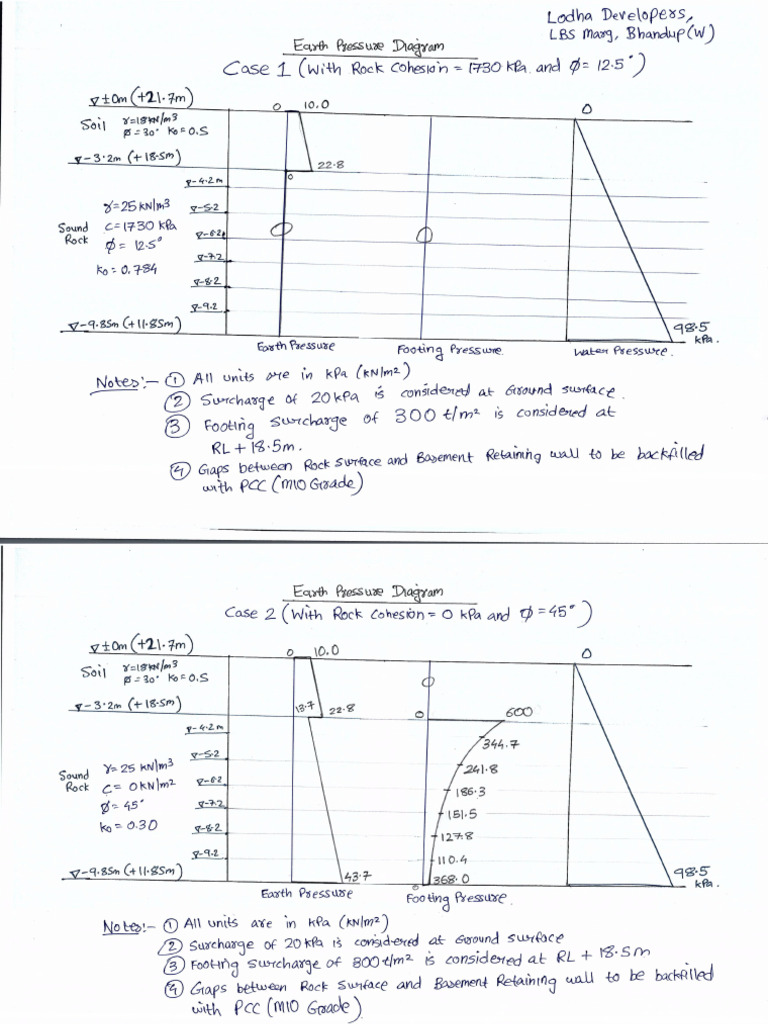 Lodha Developers,
LBS Marg, Bhandup(W)
Earth Pressure Diagram
Case 1 (With Rock Cohesion = 1730 kPa and φ = 12.5°)
▽ ±0m (+21.7m)
0 10.0
0
Soil γ=18kN/m³
φ=30° Ko=0.5
▽-3.2m (+18.5m)
22.8
0
▽-4.2m
γ=25 kN/m³
▽-5.2
Sound Rock
C=1730 kPa
▽-6.2
0
0
φ= 12.5°
▽-7.2
Ko=0.784
▽-8.2
▽-9.2
▽-9.85m (+11.85m)
98.5 kPa.
Earth Pressure
Footing Pressure
Water Pressure.
Notes:- ① All units are in kPa (kN/m²)
② Surcharge of 20kPa is considered at Ground surface.
③ Footing surcharge of 300 t/m² is considered at
RL+18.5m.
④ Gaps between Rock Surface and Basement Retaining wall to be backfilled
with PCC (M10 Grade)
Earth Pressure Diagram
Case 2 (With Rock Cohesion = 0 kPa and φ = 45°)
▽ ±0m (+21.7m)
0 10.0
0
Soil γ=18kN/m³
φ=30° Ko=0.5
0
▽-3.2m (+18.5m)
13.7 22.8
0
600
▽-4.2m
344.7
γ= 25 kN/m³
▽-5.2
241.8
Sound Rock
C= 0kN/m²
▽-6.2
186.3
φ= 45°
▽-7.2
151.5
Ko=0.30
▽-8.2
127.8
▽-9.2
110.4
▽-9.85m (+11.85m)
43.7
0
368.0
98.5 kPa.
Earth Pressure
Footing Pressure.
Notes:- ① All units are in kPa (kN/m²)
② Surcharge of 20kPa is considered at Ground surface
③ Footing surcharge of 300t/m² is considered at RL + 18.5m
④ Gaps between Rock Surface and Basement Retaining wall to be backfilled
with PCC (M10 Grade).